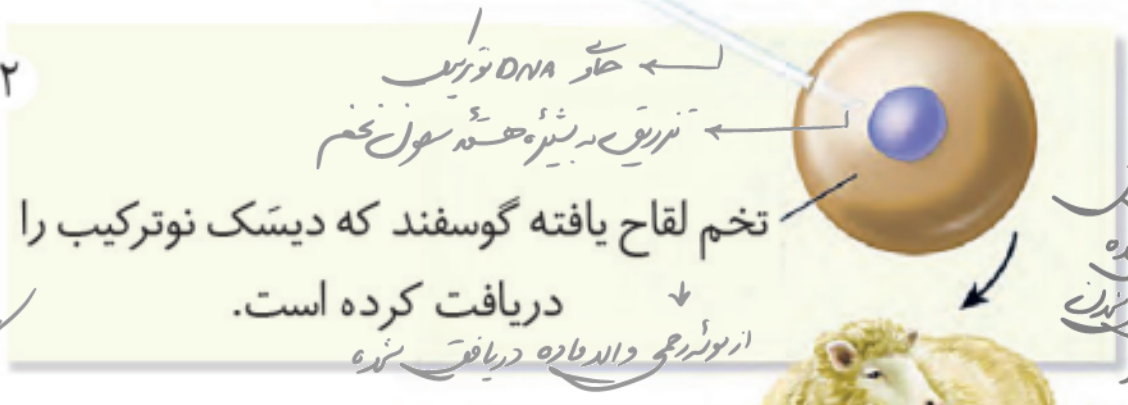 ۲
حاوی DNA نوترکیب
تزریق به هستهٔ سلول تخم
تخم لقاح یافته گوسفند که دیسَک نوترکیب را
دریافت کرده است.
از لولهٔ رحمی والد ماده دریافت شده